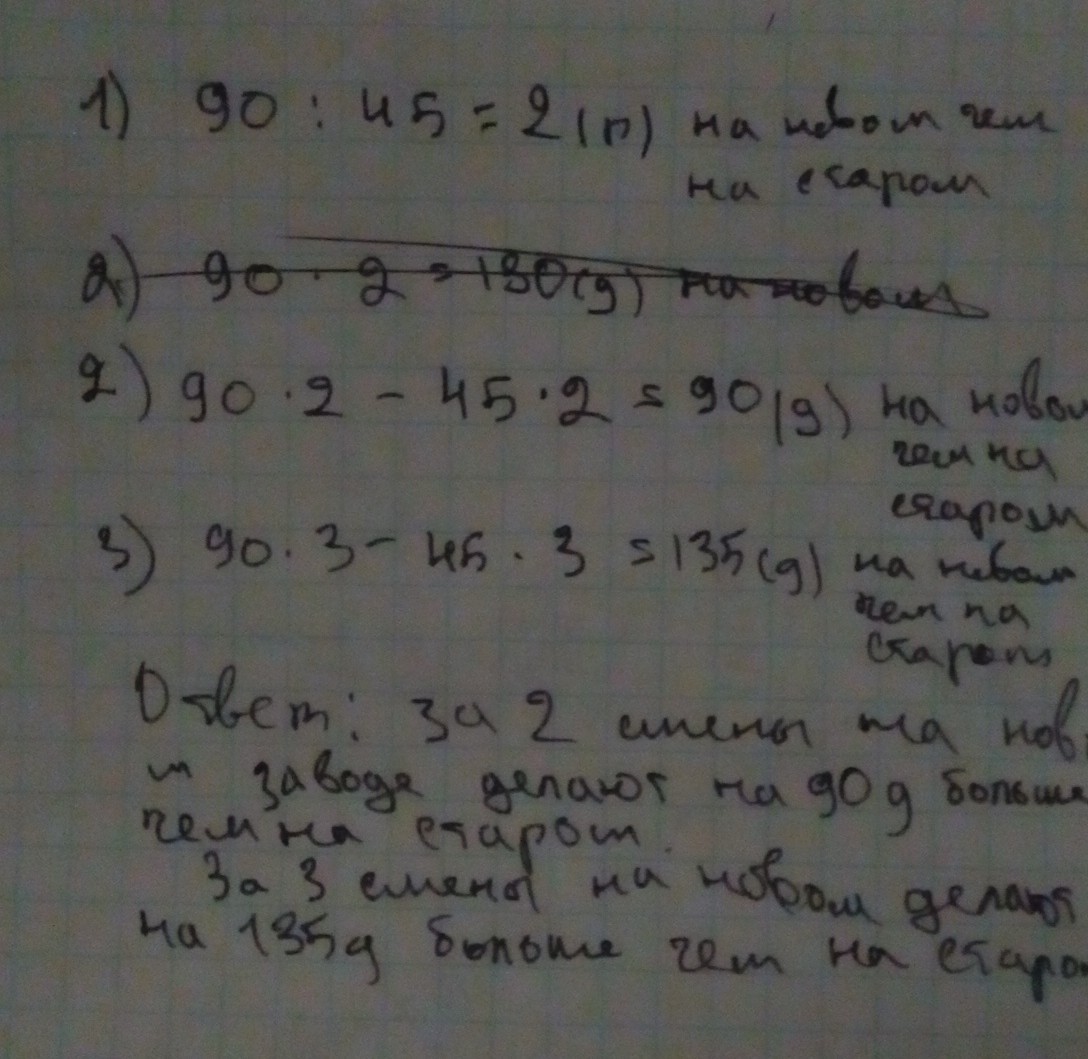 1) 90 : 45 = 2 (п) на новом чем
на старом
2) 90 · 2 = 180 (д) на новом
2) 90 · 2 - 45 · 2 = 90 (д) на новом
чем на
старом
3) 90 · 3 - 45 · 3 = 135 (д) на новом
чем на
старом
Ответ: За 2 смены на нов
м заводе делают на 90 д больше
чем на старом.
За 3 смены на новом делают
на 135 д больше чем на старом